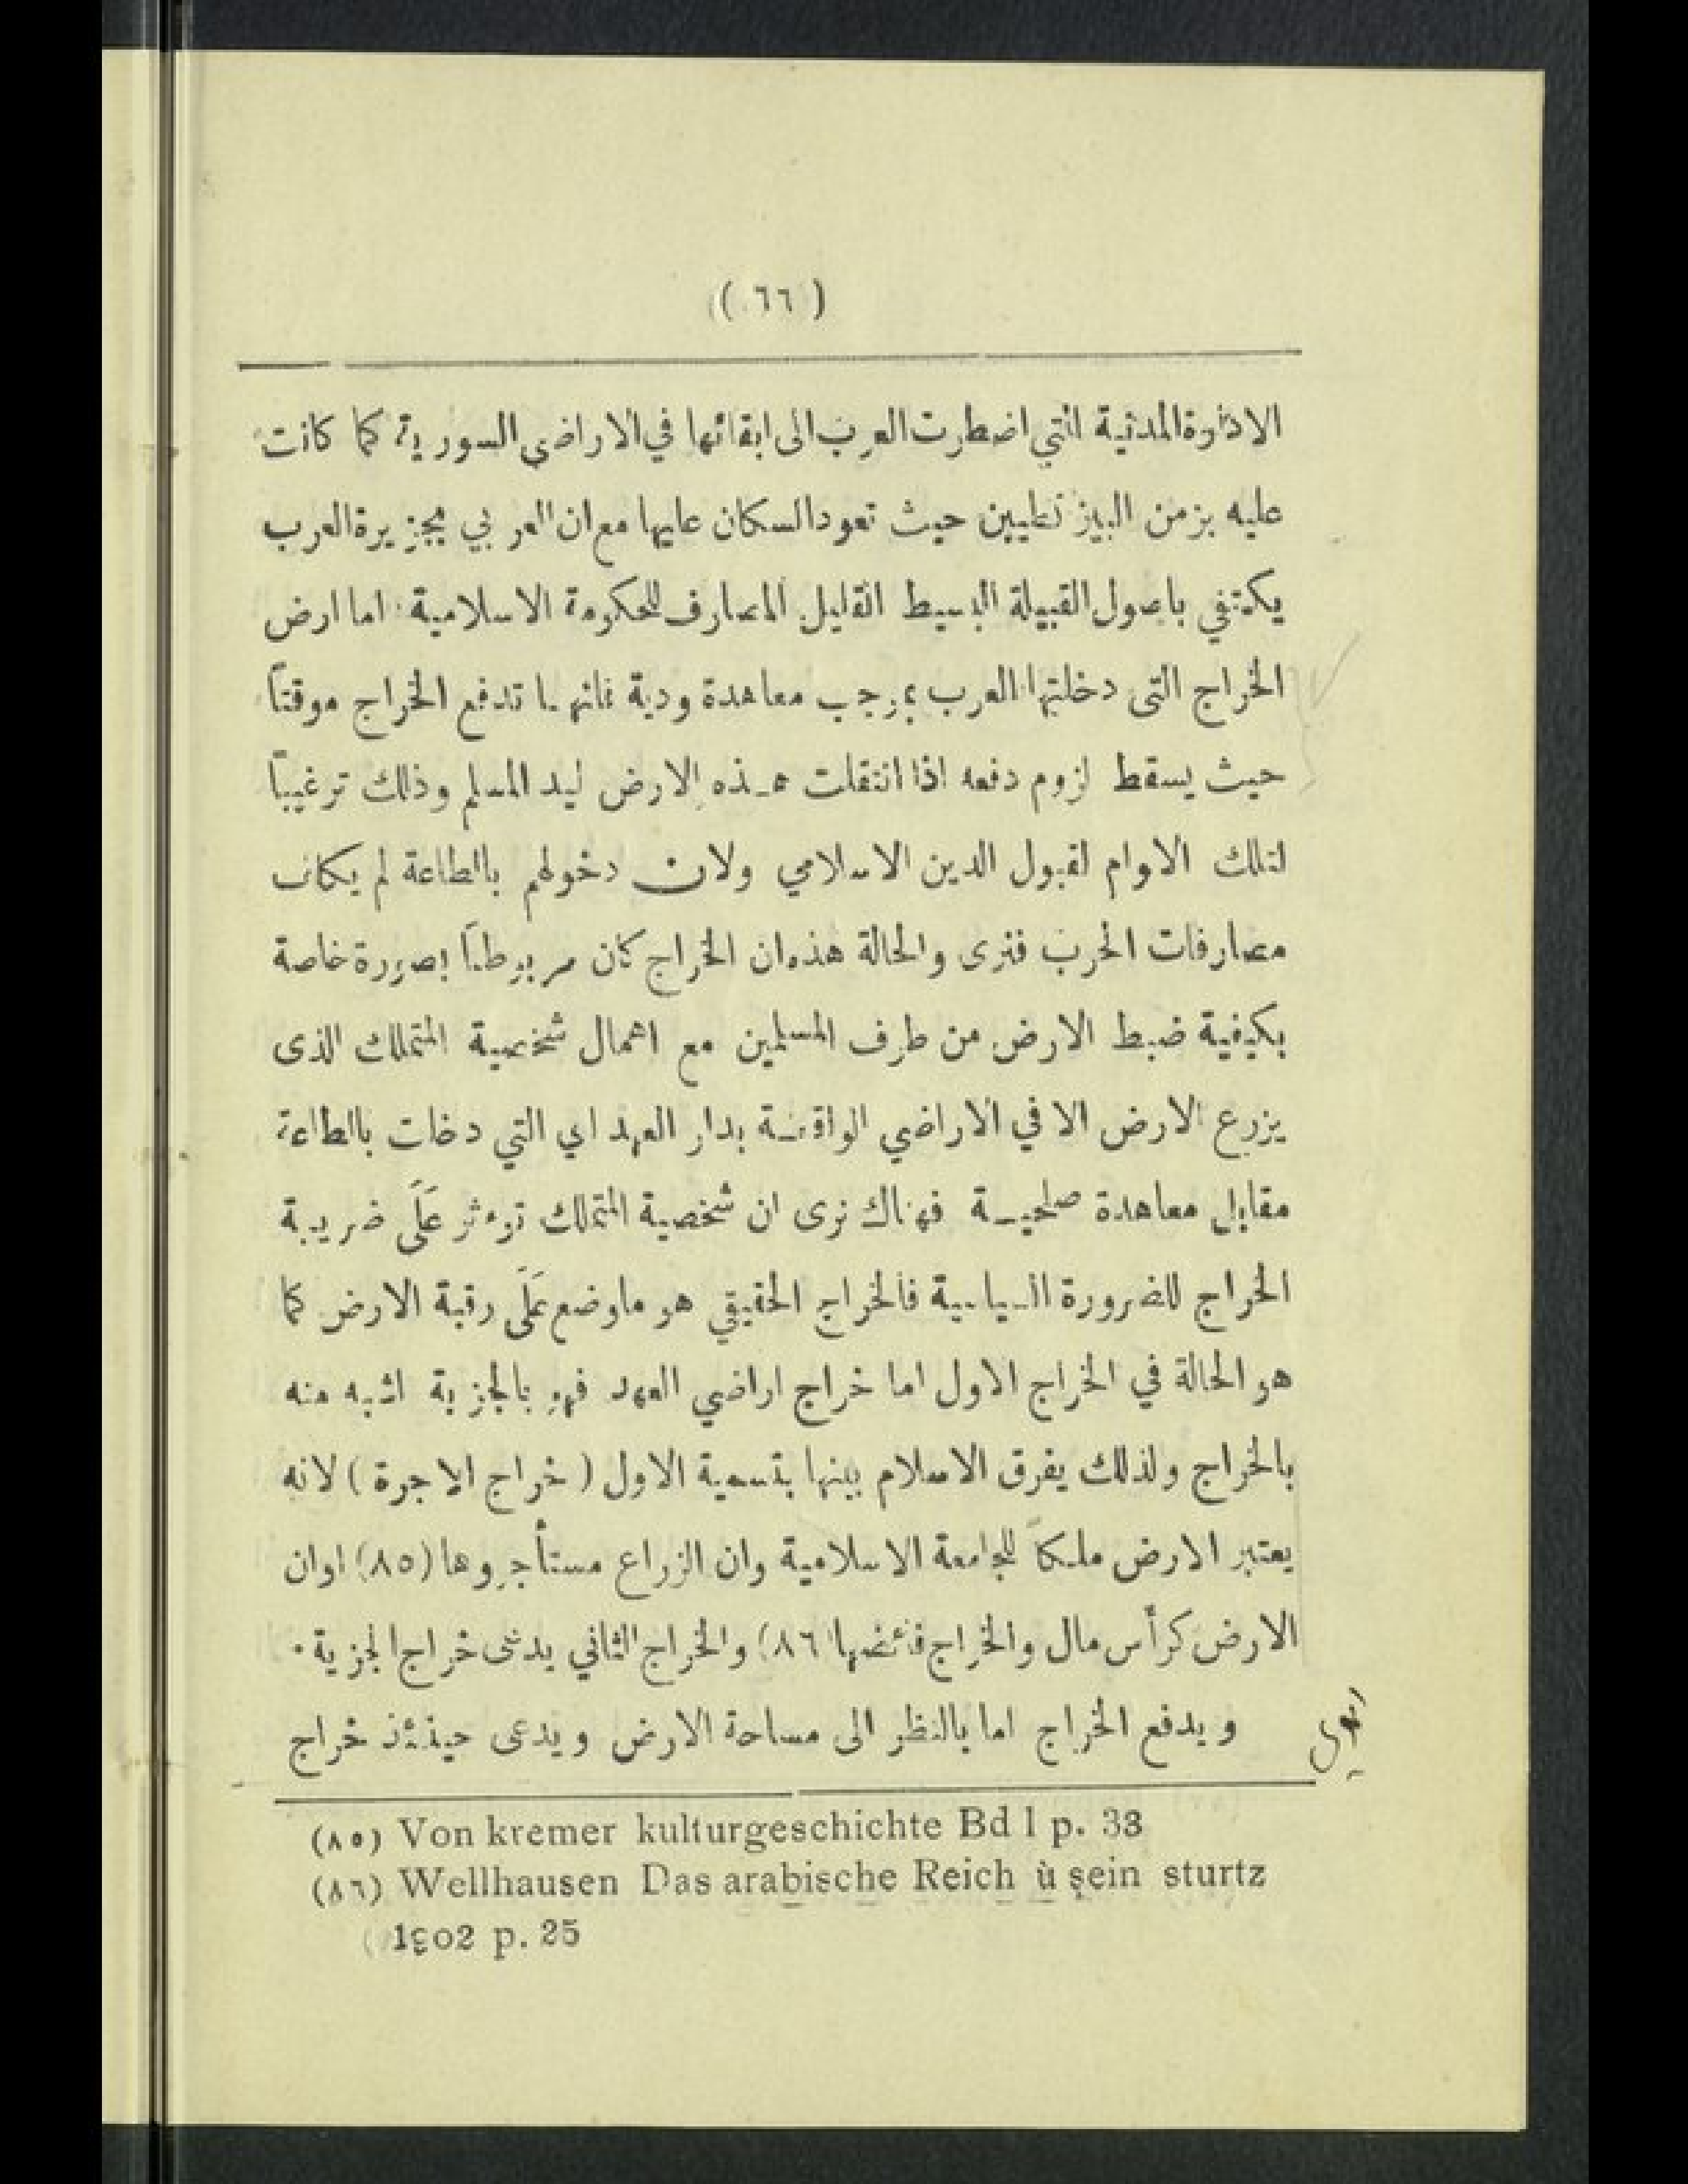 ( ٦٦ )
الادارة المدنية التي اضطرت العرب الى ابقائها في الاراضي السورية كما كانت
عليه بزمن البيزنطيين حيث تعود السكان عليها مع ان العربي بجزيرة العرب
يكتفي باصول القبيلة البسيط القليل المصارف للحكومة الاسلامية اما ارض
الخراج التى دخلتها العرب بموجب معاهدة ودية فانهـا تدفع الخراج موقتاً
حيث يسقط لزوم دفعه اذا انتقلت هـذه الارض ليد المسلم وذلك ترغيباً
لتلك الاوام لقبول الدين الاسلامي ولان دخولهم بالطاعة لم يكاف
مصارفات الحرب فنرى والحالة هذه ان الخراج كان مربوطاً بصورة خاصة
بكيفية ضبط الارض من طرف المسلمين مع اهمال شخصية المتملك الذى
يزرع الارض الا في الاراضي الواقعـة بدار العهد اي التي دخلت بالطاعة
مقابل معاهدة صلحيـة فهناك نرى ان شخصية المتملك توءثر عَلَى ضريبة
الخراج للضرورة السياسية فالخراج الحقيقي هو ما وضع عَلَى رقبة الارض كما
هو الحالة في الخراج الاول اما خراج اراضي العهد فهو بالجزية اشبه منه
بالخراج ولذلك يفرق الاسلام بينها بتسمية الاول ( خراج الاجرة ) لانه
يعتبر الارض ملكاً للجامعة الاسلامية وان الزراع مستأجروها (٨٥) اوان
الارض كرأس مال والخراج فائضها (٨٦) والخراج الثاني يدعى خراج الجزية ٠
ويدفع الخراج اما بالنظر الى مساحة الارض ويدعى حينئذ خراج
(٨٥) Von kremer kulturgeschichte Bd l p. 33
(٨٦) Wellhausen Das arabische Reich ù sein sturtz
1902 p. 25